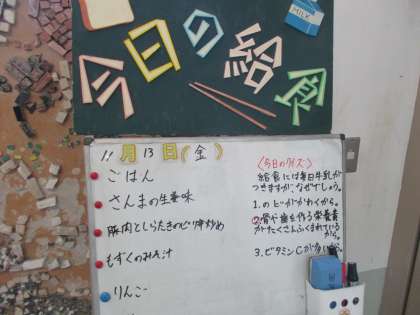 MILK
今日の給食
11月13日(金)
ごはん
さんまの生姜味
豚肉としらたきのピリ辛炒め
もずくのみそ汁
りんご
〈今日のクイズ〉
給食には毎日牛乳が
つきますが、なぜでしょう。
1.のどがかわくから。
②骨や歯を作る栄養素
がたくさんふくまれている
から。
3.ビタミンCが多いから。